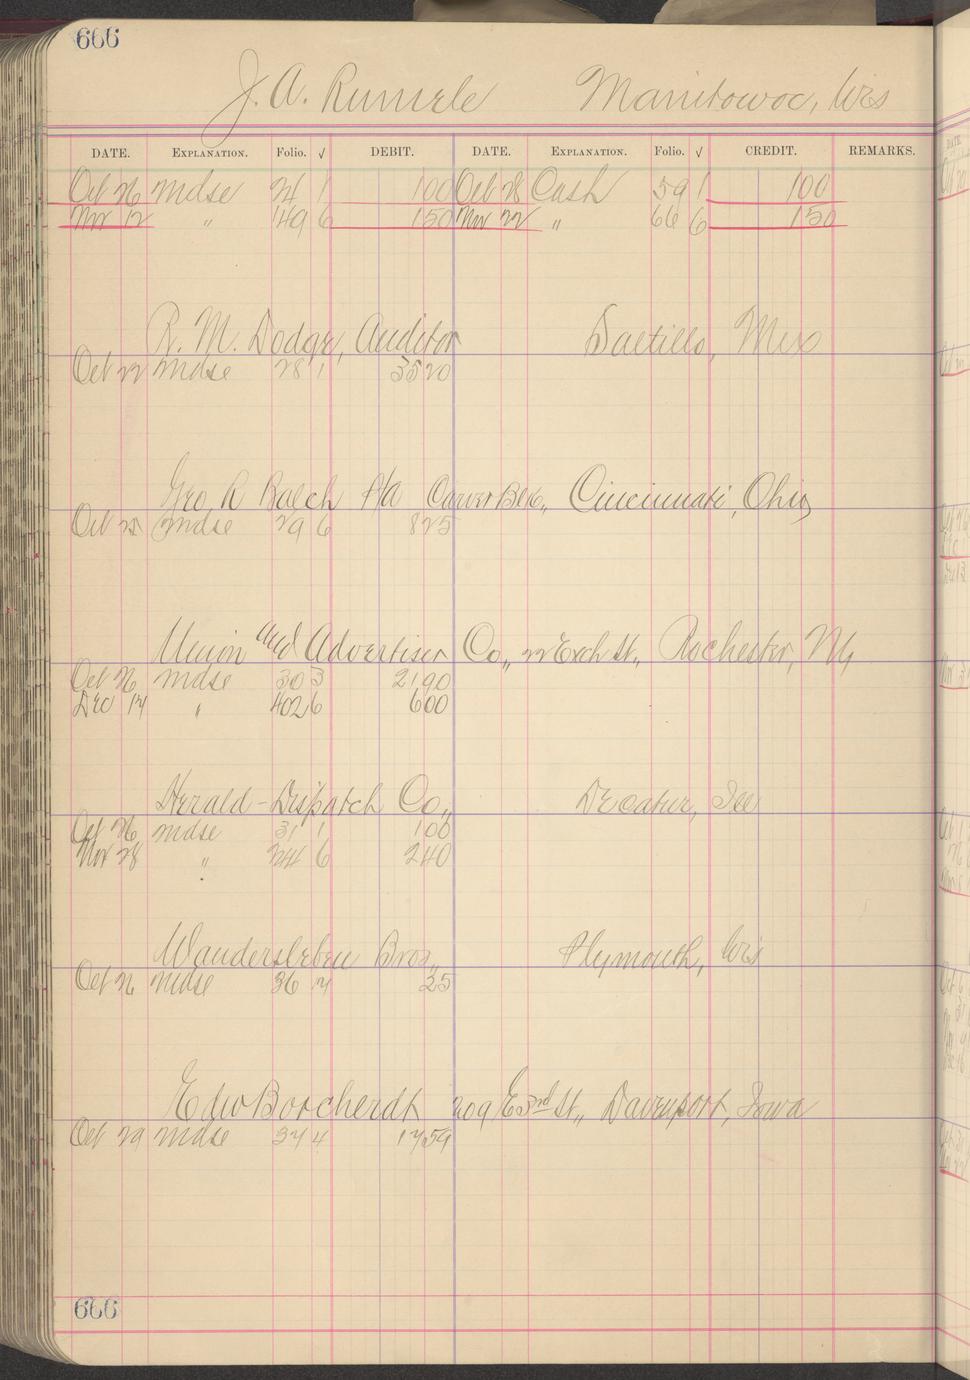 666
J. A. Rumele Manitowoc, Wis
DATE. EXPLANATION. Folio. √ DEBIT. DATE. EXPLANATION. Folio. √ CREDIT. REMARKS.
Oct 26 mdse 24 1 100 Oct 28 Cash 59 1 100
Nov 12 " 149 6 150 Nov 22 " 66 6 150
R. M. Dodge, Auditor Saltillo, Mex
Oct 22 mdse 28 1 3520
Geo R Balch Carver Blk., Cincinnati, Ohio
Oct 25 mdse 29 6 825
Union and Advertiser Co., 22 Exch St., Rochester, NY
Oct 26 mdse 30 3 2190
Dec 14 " 402 6 600
Herald-Dispatch Co., Decatur, Ill
Oct 26 mdse 31 1 100
Nov 28 " 244 6 240
Wandersleben Bros., Plymouth, Wis
Oct 26 mdse 36 25
Edw Borcherdt 209 E 3rd St., Davenport, Iowa
Oct 29 mdse 37 4 1759
666